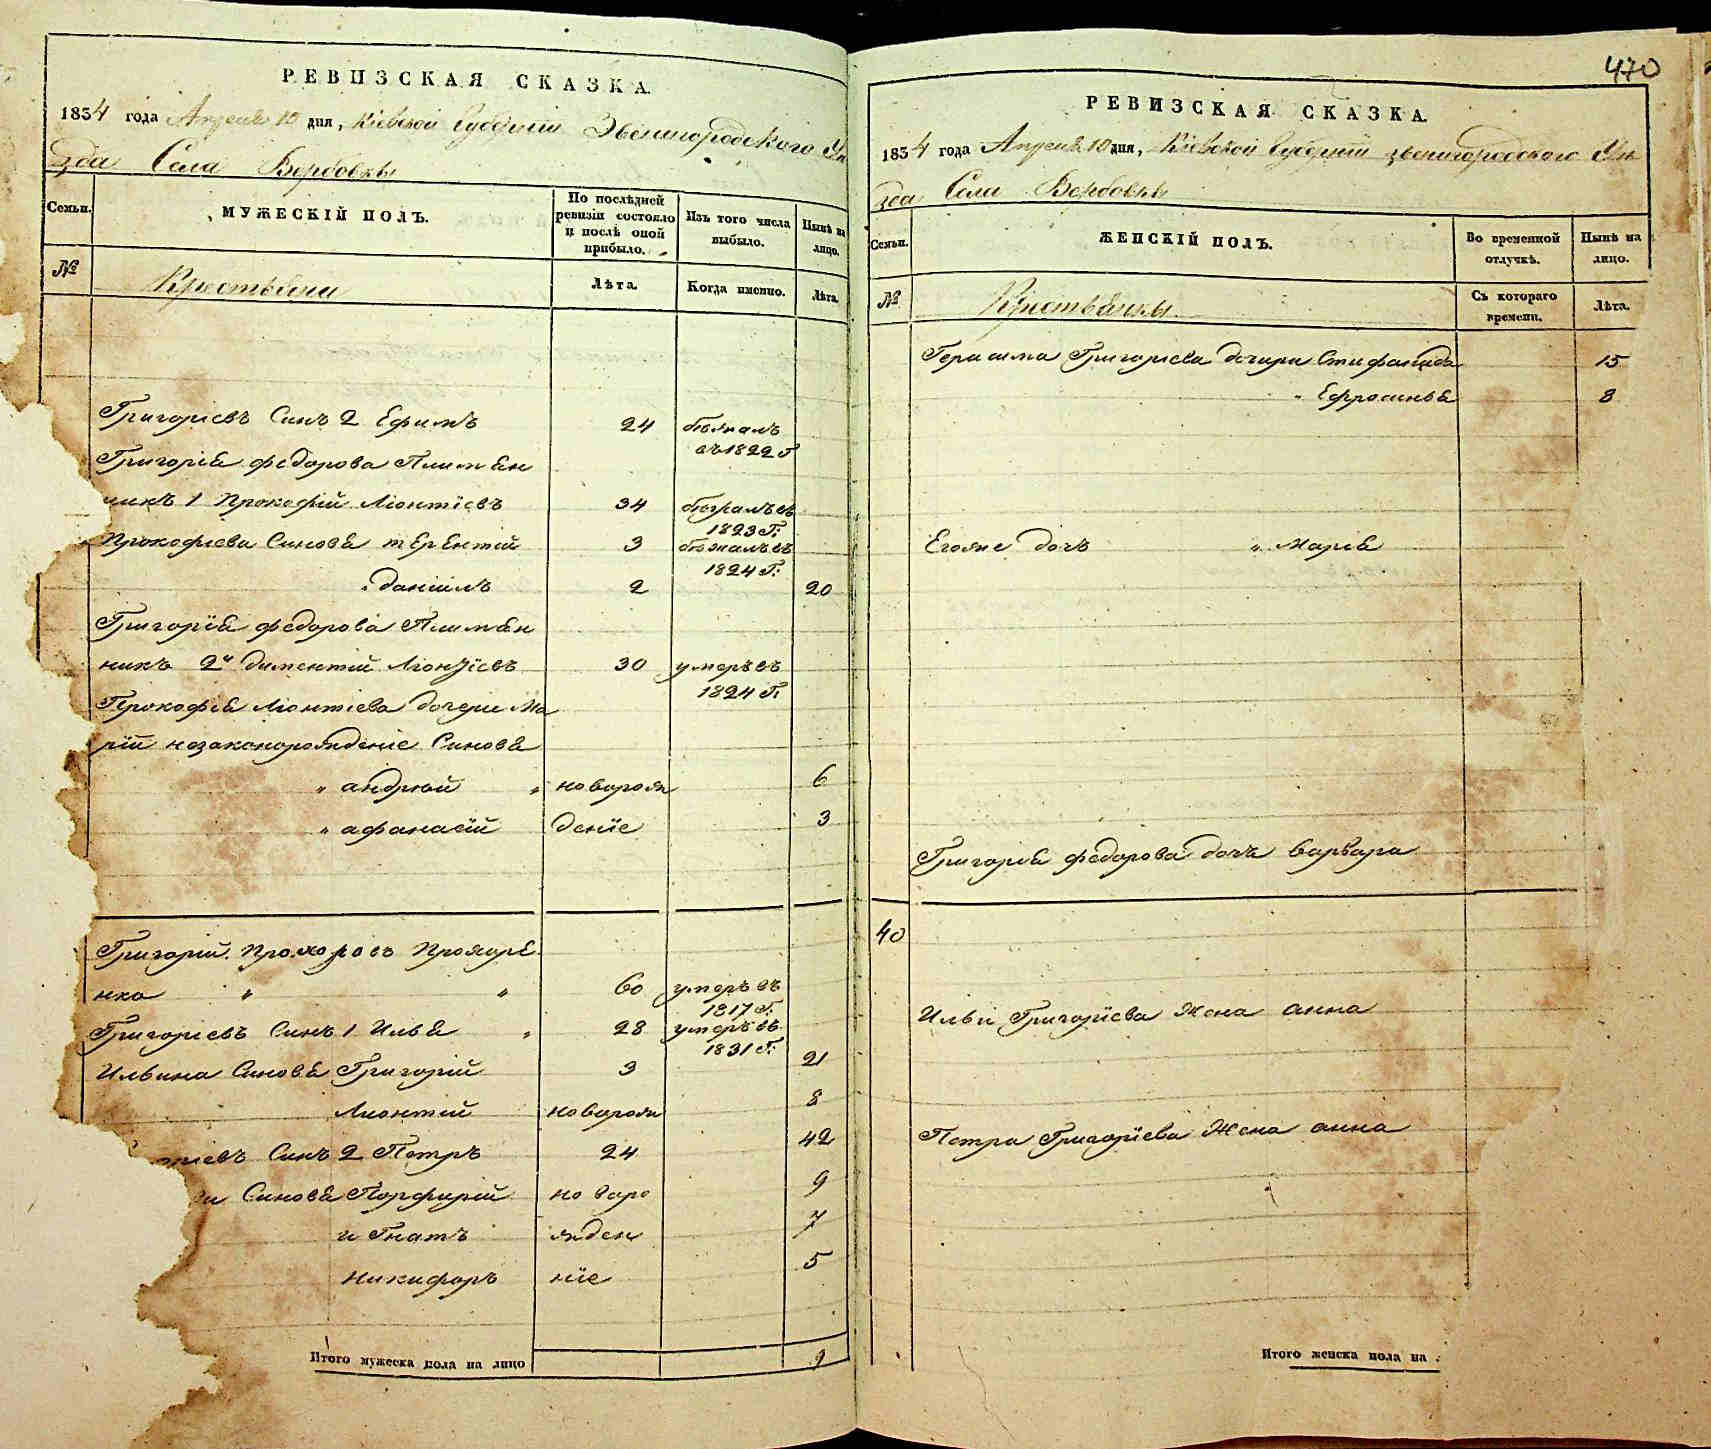 РЕВИЗСКАЯ СКАЗКА.
1834 года Апреля 10 дня, Кіевской Губерніи Звенигородского Уѣ
зда Села Вербовки
Семьи.
МУЖЕСКІЙ ПОЛЪ.
По послѣдней ревизіи состояло и послѣ оной прибыло.
Изъ того числа выбыло.
Нынѣ на лицо.
№
Крестьяни
Лѣта.
Когда именно.
Лѣта.
Григоріевъ Синъ 2 Ефимъ 24 бѣжалъ
въ 1822 Г
Григорія федорова Племян
никъ 1 Прокофій Ліонтіевъ 34
1823 Г:
Прокофіева Синовя терентій 3 бѣжалъ въ
1824 Г:
" даніилъ 2 20
Григорія федорова Племян
никъ 2й дементій Ліонтіевъ 30 умеръ въ
1824 Г:
Прокофія Ліонтіева дочери Ма
рїи незаконорожденіе Синовя
" андрей " новорож 6
" афанасїй денїе 3
Григорій Прохоровъ Прохоре
нко " " 60 умеръ въ
1817 Г.
Григоріевъ Синъ 1 Илья " 28 умеръ въ
1831 Г:
Ильина Синовя Григорій 3 21
Лионтий новорож 8
ріевъ Синъ 2 Петръ 24 42
Синовя Порфирій новоро 9
и Гнатъ жден 7
Никифоръ нїе 5
Итого мужеска пола на лицо 9
470
РЕВИЗСКАЯ СКАЗКА.
1834 года Апреля 10 дня, Кіевской Губерніи звенигородского Уѣ
зда Села Вербовки
Семьи.
ЖЕНСКІЙ ПОЛЪ.
Во временной отлучкѣ.
Нынѣ на лицо.
№
Крестьянки
Съ котораго времени.
Лѣта.
Герасима Григоріева дочери Стефанида 15
" Ефросинья 8
Егоже дочь " Марія
Григорія федорова дочь варвара
40
Ильи Григоріева Жена анна
Петра Григорїева Жена анна
Итого женска пола на